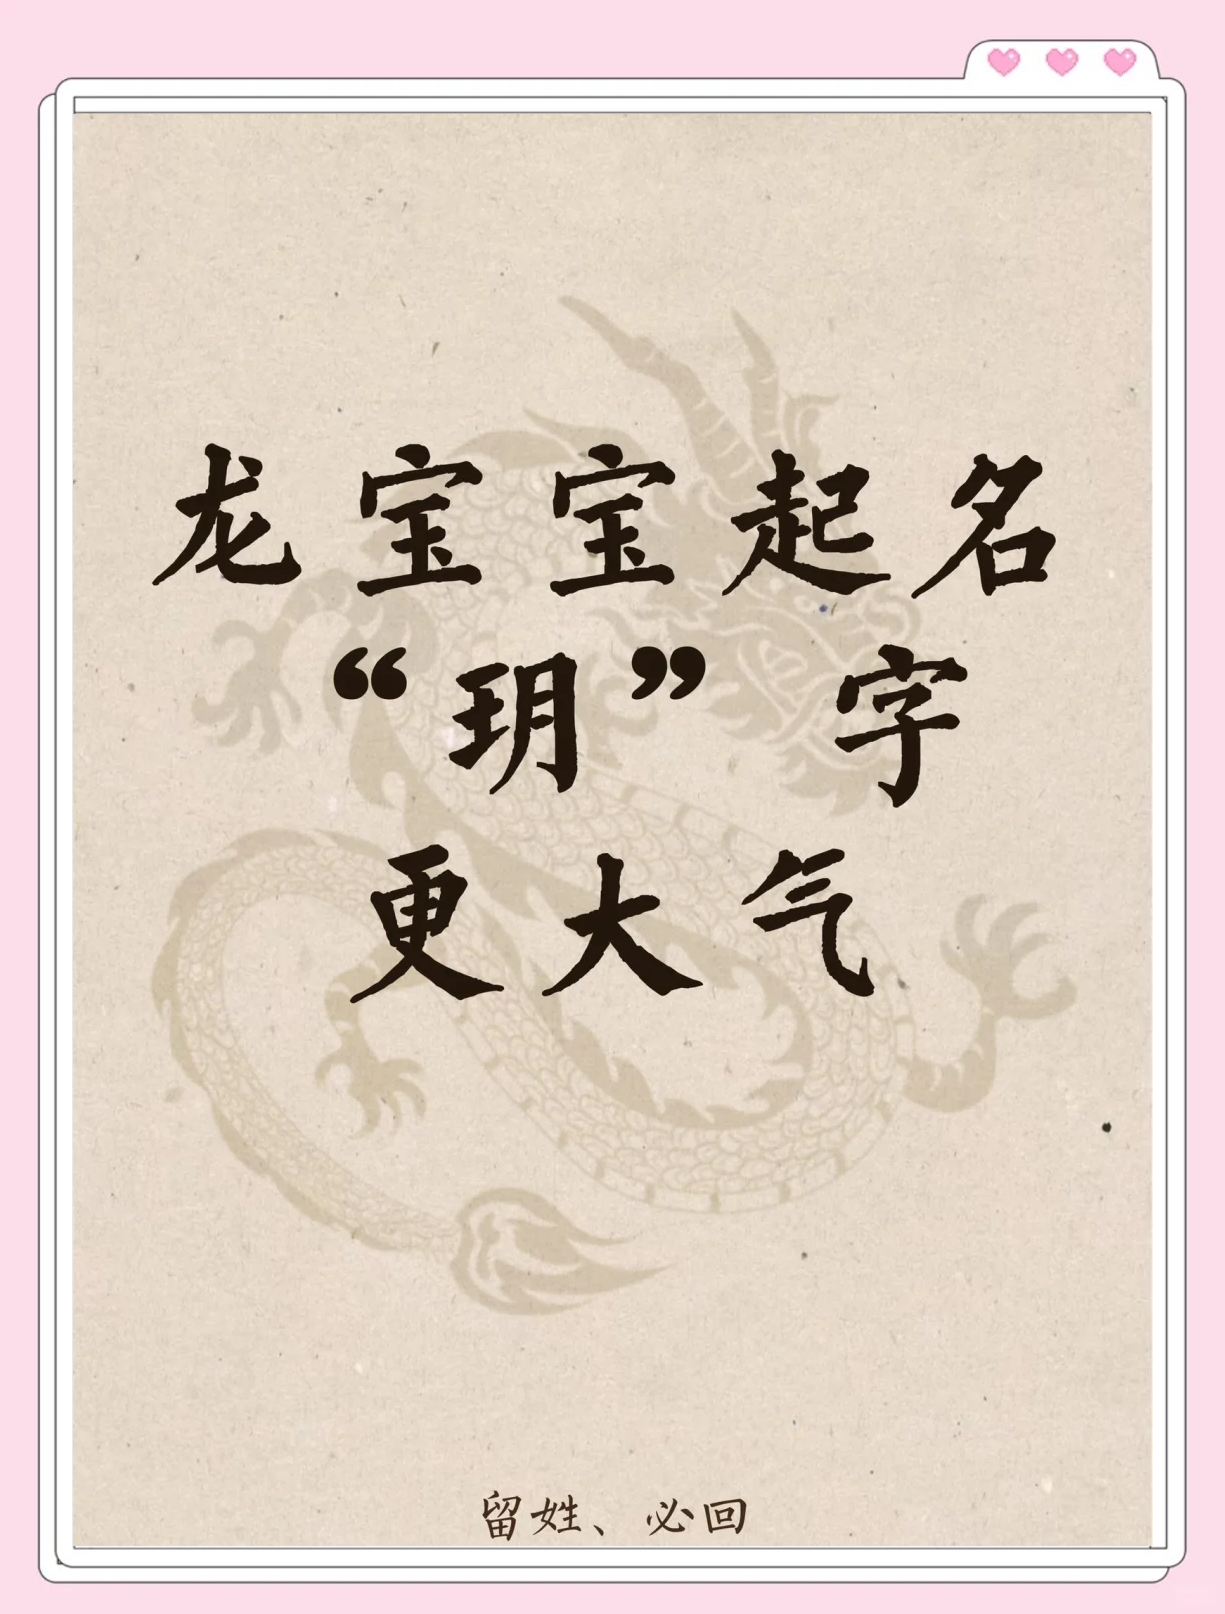 龙宝宝起名
“玥”字
更大气
留姓、必回